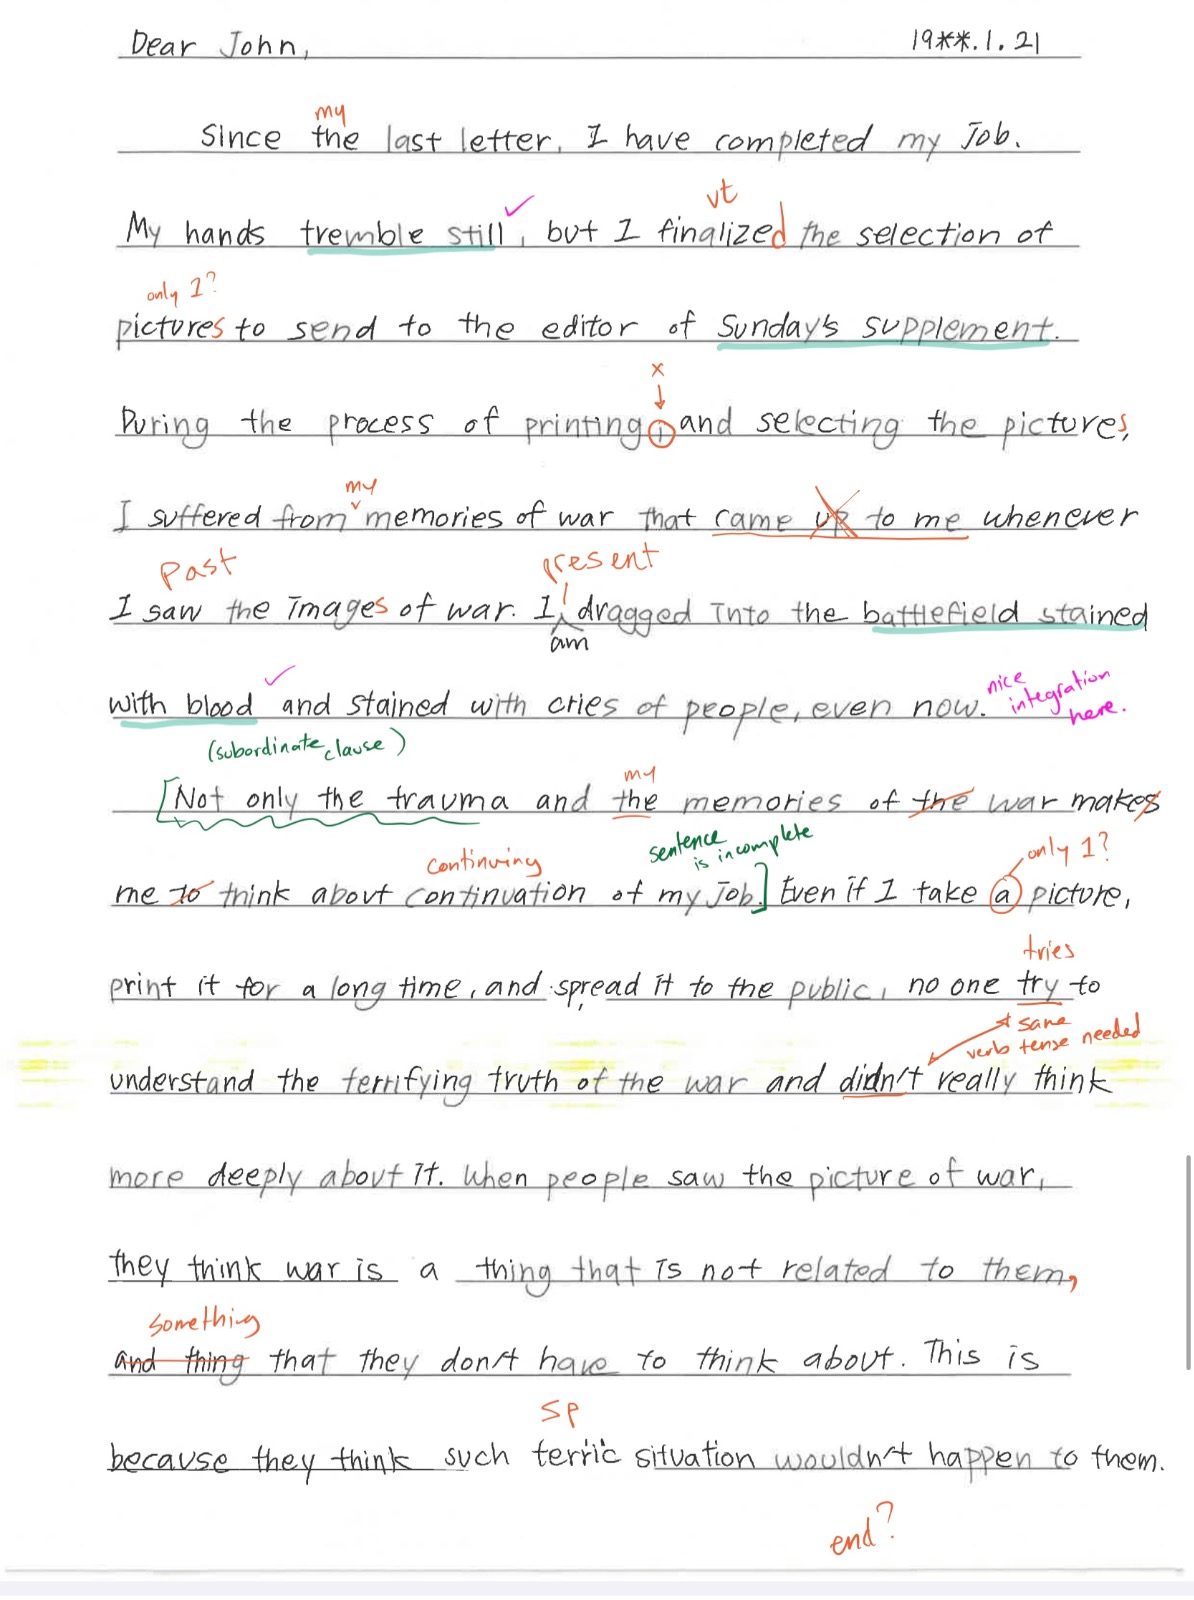 Dear John,
19**.1.21
my
Since the last letter, I have completed my Job.
vt
My hands tremble still, but I finalized the selection of
only 1?
pictures to send to the editor of Sunday's supplement.
x
During the process of printing, and selecting the pictures,
my
I suffered from memories of war that came up to me whenever
past present
I saw the images of war. I dragged into the battlefield stained
am
with blood and stained with cries of people, even now.
nice
integration
here.
(subordinate clause)
my
[Not only the trauma and the memories of the war makes
sentence
is incomplete
continuing
only 1?
me to think about continuation of my Job.] Even if I take a picture,
tries
print it for a long time, and spread it to the public, no one try to
* same
verb tense needed
understand the terrifying truth of the war and didn't really think
more deeply about it. When people saw the picture of war,
they think war is a thing that is not related to them,
something
and thing that they don't have to think about. This is
sp
because they think such terric situation wouldn't happen to them.
end?